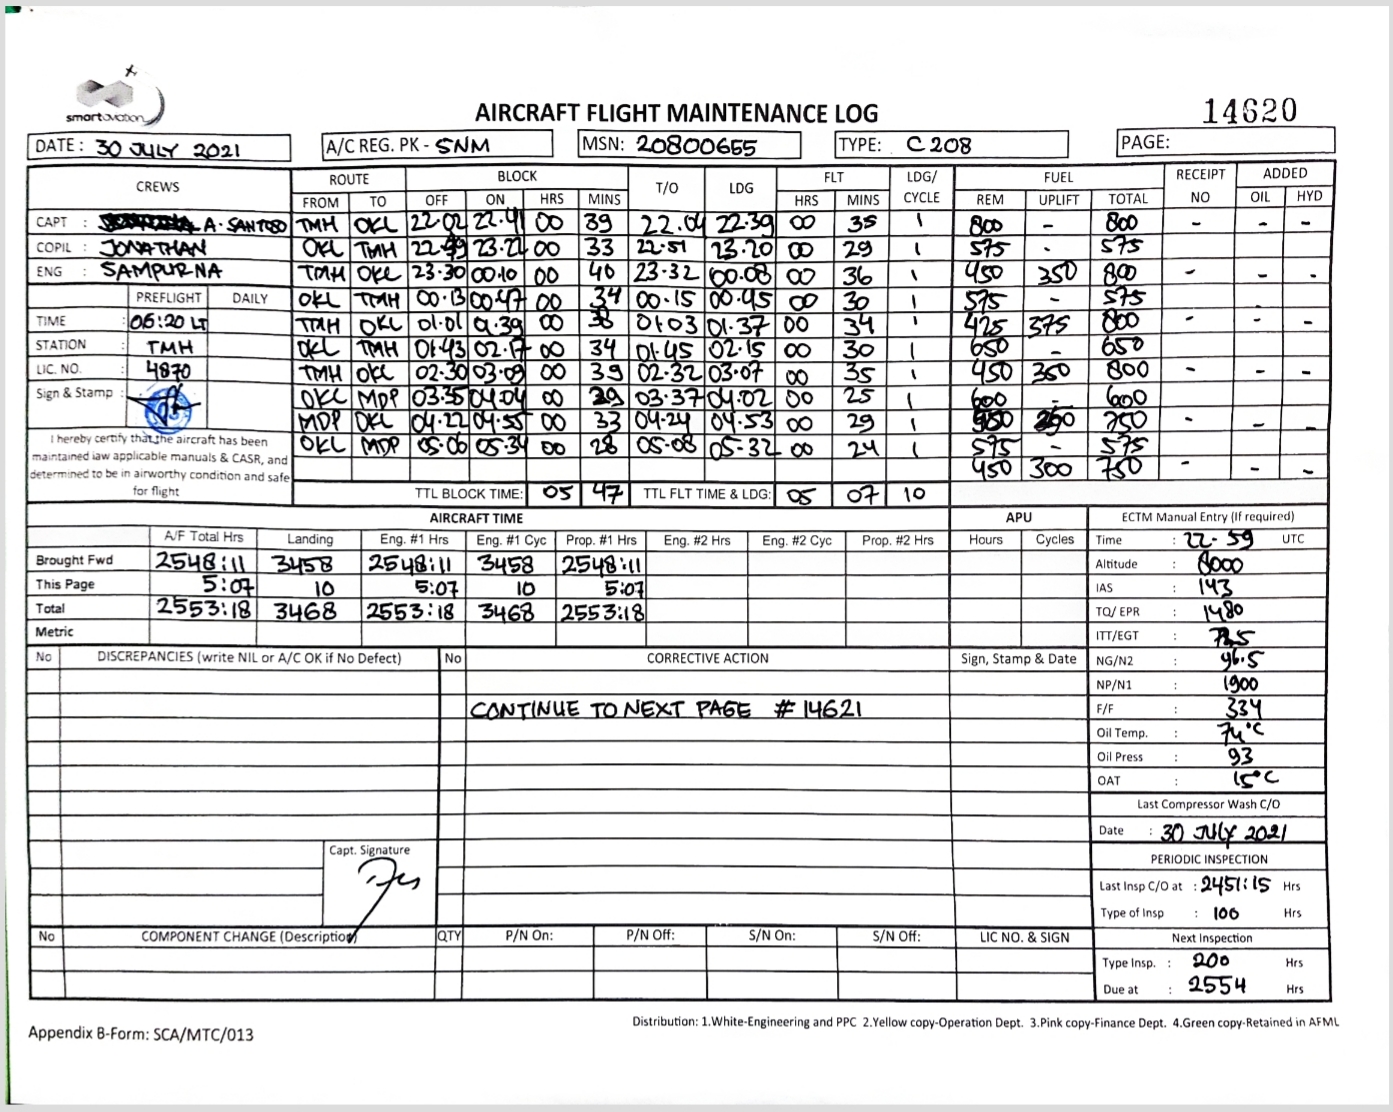 smartaviation
AIRCRAFT FLIGHT MAINTENANCE LOG
14620
DATE : 30 JULY 2021 A/C REG. PK - SNM MSN: 20800655 TYPE: C208 PAGE:
CREWS ROUTE BLOCK T/O LDG FLT LDG/ CYCLE FUEL RECEIPT NO ADDED
FROM TO OFF ON HRS MINS HRS MINS REM UPLIFT TOTAL OIL HYD
CAPT : A. SANTOSO TMH OKL 22.02 22.41 00 39 22.04 22.39 00 35 1 800 - 800 - - -
COPIL : JONATHAN OKL TMH 22.49 23.22 00 33 22.51 23.20 00 29 1 575 - 575
ENG : SAMPURNA TMH OKL 23.30 00.10 00 40 23.32 00.08 00 36 1 450 350 800 - - -
PREFLIGHT DAILY OKL TMH 00.13 00.47 00 34 00.15 00.45 00 30 1 575 - 575
TIME : 06:20 LT TMH OKL 01.01 01.39 00 38 01.03 01.37 00 34 1 425 375 800 - - -
STATION : TMH OKL TMH 01.43 02.17 00 34 01.45 02.15 00 30 1 650 - 650
LIC. NO. : 4870 TMH OKL 02.30 03.09 00 39 02.32 03.07 00 35 1 450 350 800 - - -
Sign & Stamp : OKL MDP 03.35 04.04 00 29 03.37 04.02 00 25 1 600 - 600
MDP OKL 04.22 04.55 00 33 04.24 04.53 00 29 1 750 - - -
OKL MDP 05.06 05.34 00 28 05.08 05.32 00 24 1 575 - 575
450 300 750 - - -
I hereby certify that the aircraft has been
maintained iaw applicable manuals & CASR, and
determined to be in airworthy condition and safe
for flight
TTL BLOCK TIME: 05 47 TTL FLT TIME & LDG: 05 07 10
AIRCRAFT TIME APU ECTM Manual Entry (If required)
A/F Total Hrs Landing Eng. #1 Hrs Eng. #1 Cyc Prop. #1 Hrs Eng. #2 Hrs Eng. #2 Cyc Prop. #2 Hrs Hours Cycles Time : 22-59 UTC
Brought Fwd 2548:11 3458 2548:11 3458 2548:11 Altitude : 8000
This Page 5:07 10 5:07 10 5:07 IAS : 143
Total 2553:18 3468 2553:18 3468 2553:18 TQ/ EPR : 1480
Metric ITT/EGT :
No DISCREPANCIES (write NIL or A/C OK if No Defect) No CORRECTIVE ACTION Sign, Stamp & Date NG/N2 : 96.5
NP/N1 : 1900
CONTINUE TO NEXT PAGE # 14621 F/F : 334
Oil Temp. : 74°C
Oil Press : 93
OAT : 15°C
Last Compressor Wash C/O
Date : 30 JULY 2021
Capt. Signature
PERIODIC INSPECTION
Last Insp C/O at : 2451:15 Hrs
Type of Insp : 100 Hrs
No COMPONENT CHANGE (Description) QTY P/N On: P/N Off: S/N On: S/N Off: LIC NO. & SIGN Next Inspection
Type Insp. : 200 Hrs
Due at : 2554 Hrs
Distribution: 1.White-Engineering and PPC 2.Yellow copy-Operation Dept. 3.Pink copy-Finance Dept. 4.Green copy-Retained in AFML
Appendix B-Form: SCA/MTC/013